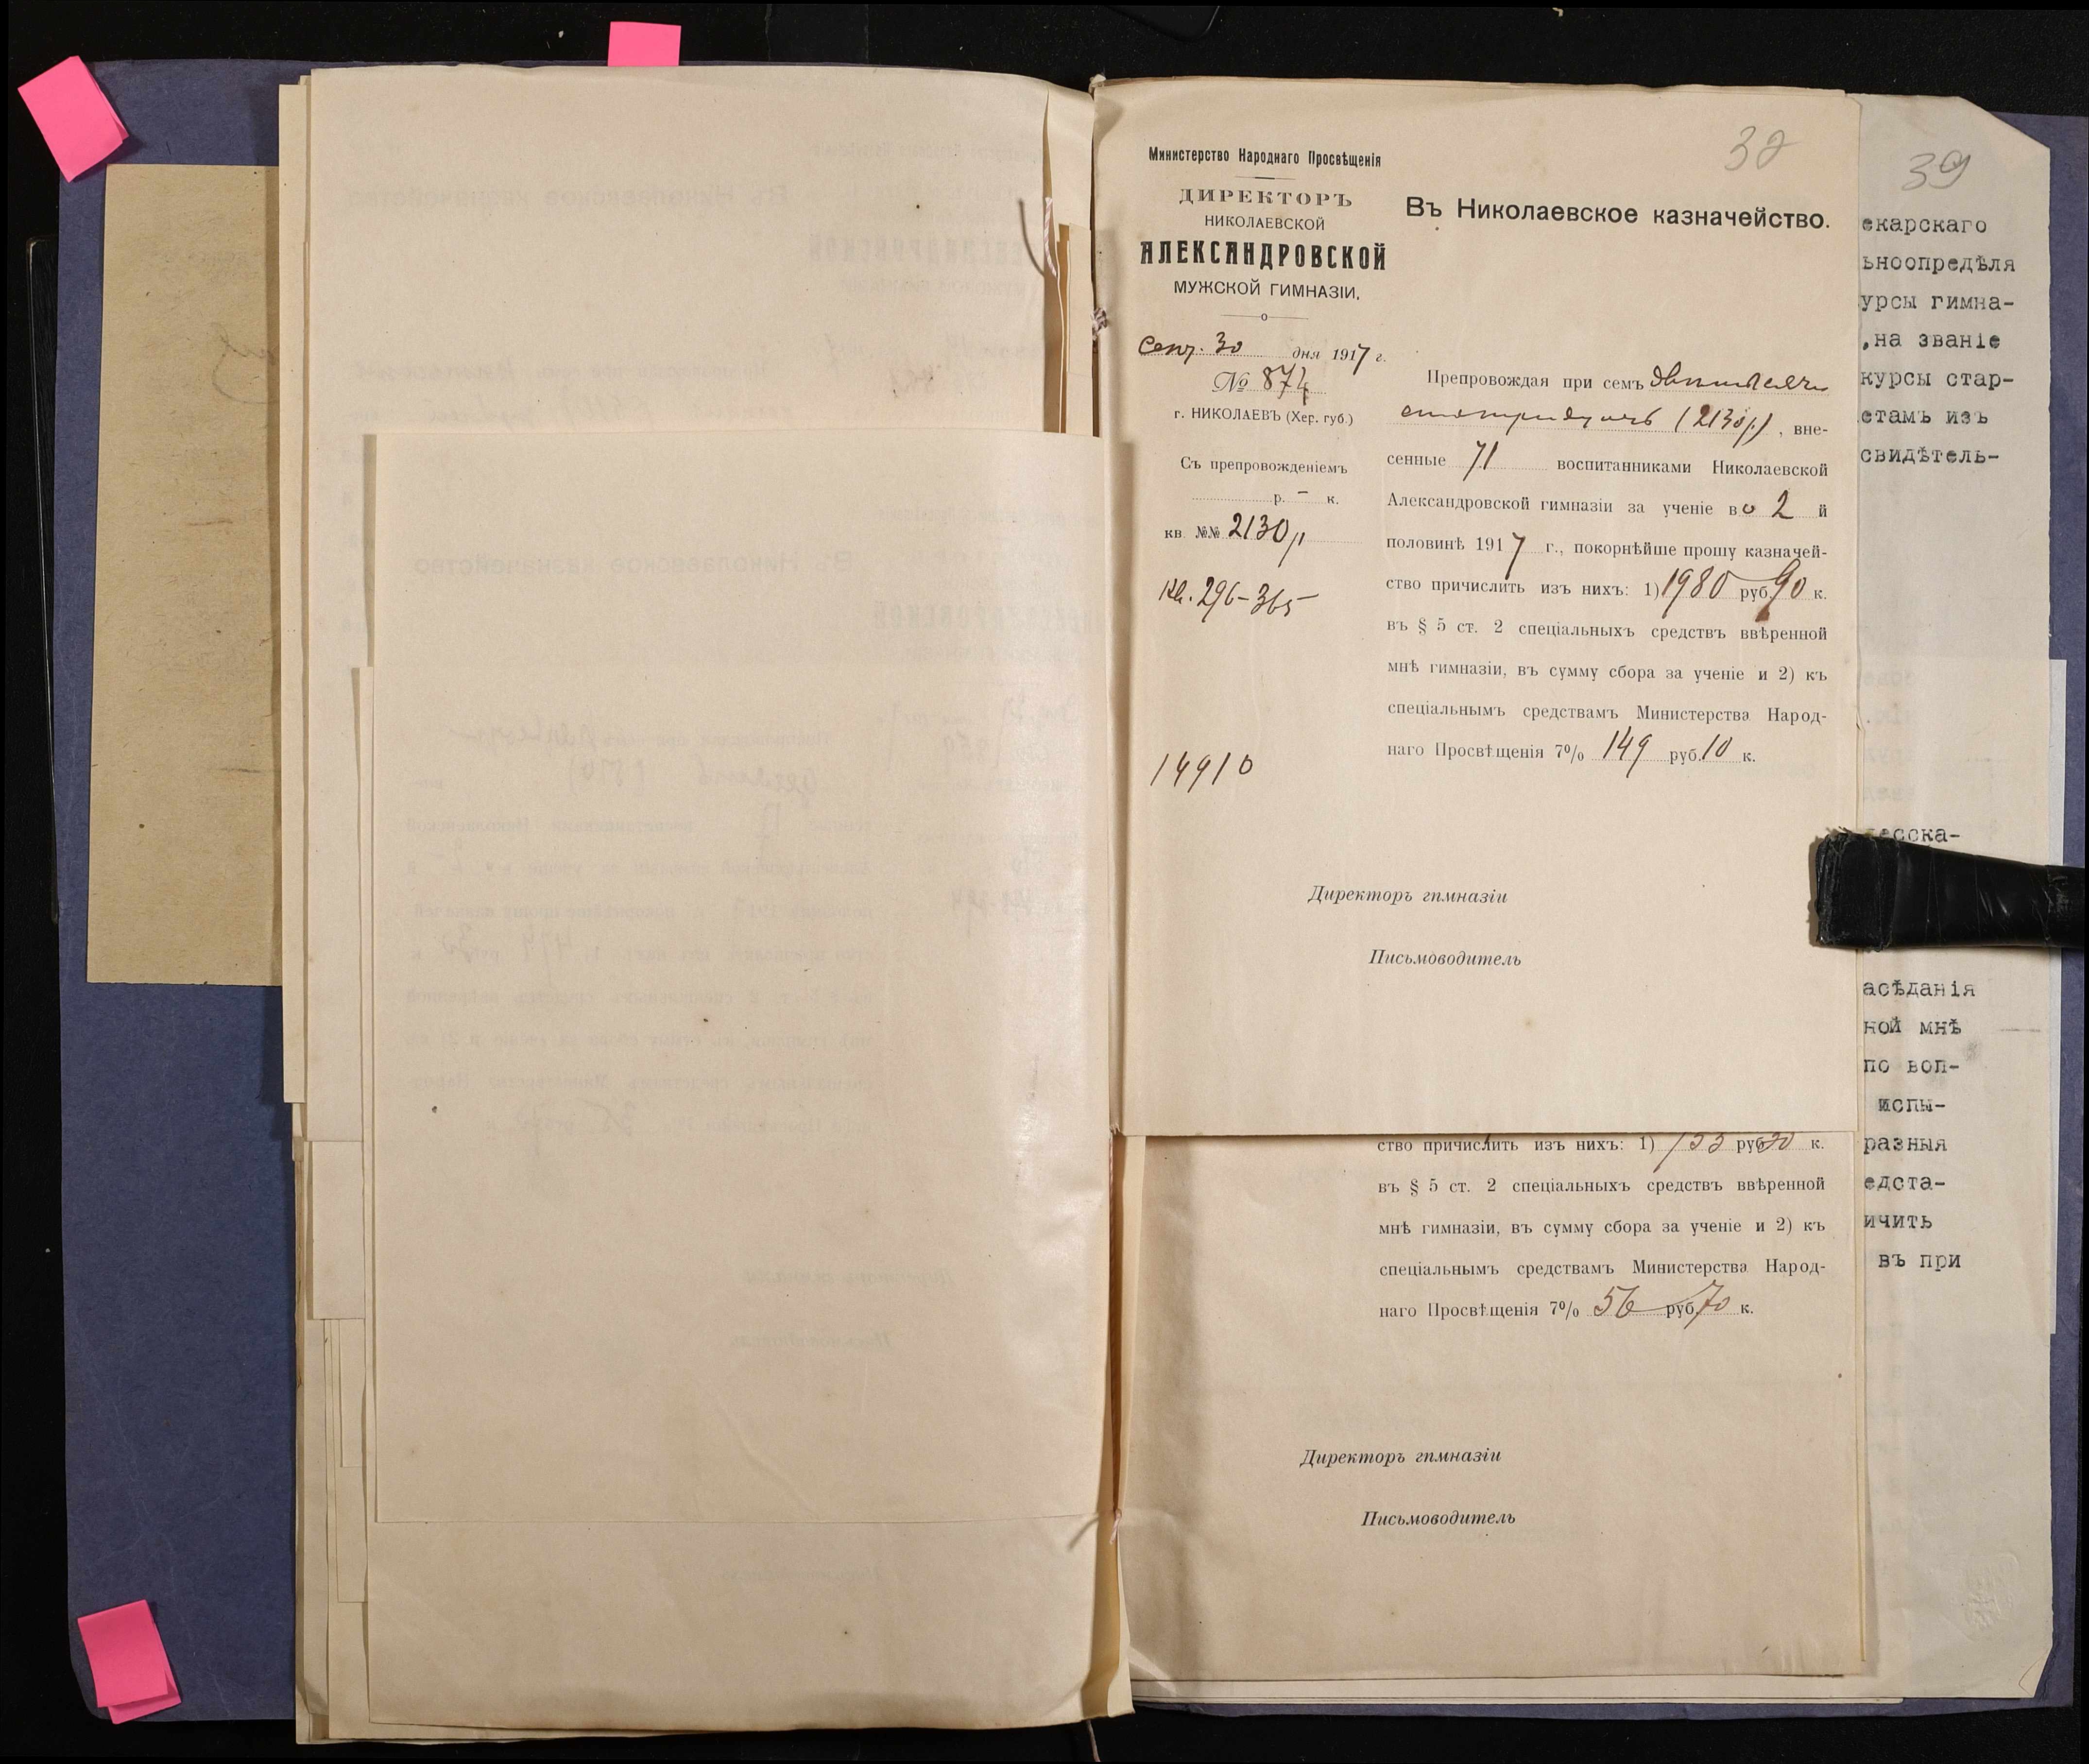 32
Министерство Народнаго Просвѣщенія
ДИРЕКТОРЪ
НИКОЛАЕВСКОЙ
АЛЕКСАНДРОВСКОЙ
МУЖСКОЙ ГИМНАЗІИ.
Сент. 30 дня 1917 г.
№ 874
г. НИКОЛАЕВЪ (Хер. губ.)
Съ препровожденіемъ
р. – к.
кв. №№ 2130 р
Кв. 296-365
14910
Въ Николаевское казначейство.
Препровождая при семъ двѣ тысячи
сто тридцать (2130 р.), вне-
сенные 71 воспитанниками Николаевской
Александровской гимназіи за ученіе во 2 й
половинѣ 1917 г., покорнѣйше прошу казначей-
ство причислить изъ нихъ: 1) 1980 руб. 90 к.
въ § 5 ст. 2 спеціальныхъ средствъ ввѣренной
мнѣ гимназіи, въ сумму сбора за ученіе и 2) къ
спеціальнымъ средствамъ Министерства Народ-
наго Просвѣщенія 7% 149 руб. 10 к.
Директоръ гимназіи
Письмоводитель
ство причислить изъ нихъ: 1) руб. 30 к.
въ § 5 ст. 2 спеціальныхъ средствъ ввѣренной
мнѣ гимназіи, въ сумму сбора за ученіе и 2) къ
спеціальнымъ средствамъ Министерства Народ-
наго Просвѣщенія 7% 56 руб. 70 к.
Директоръ гимназіи
Письмоводитель
39
екарскаго
ьноопредѣля
урсы гимна-
,на званіе
курсы стар-
етамъ изъ
свидѣтель-
есска-
асѣданія
ной мнѣ
по воп-
испы-
разныя
едста-
ичить
въ при